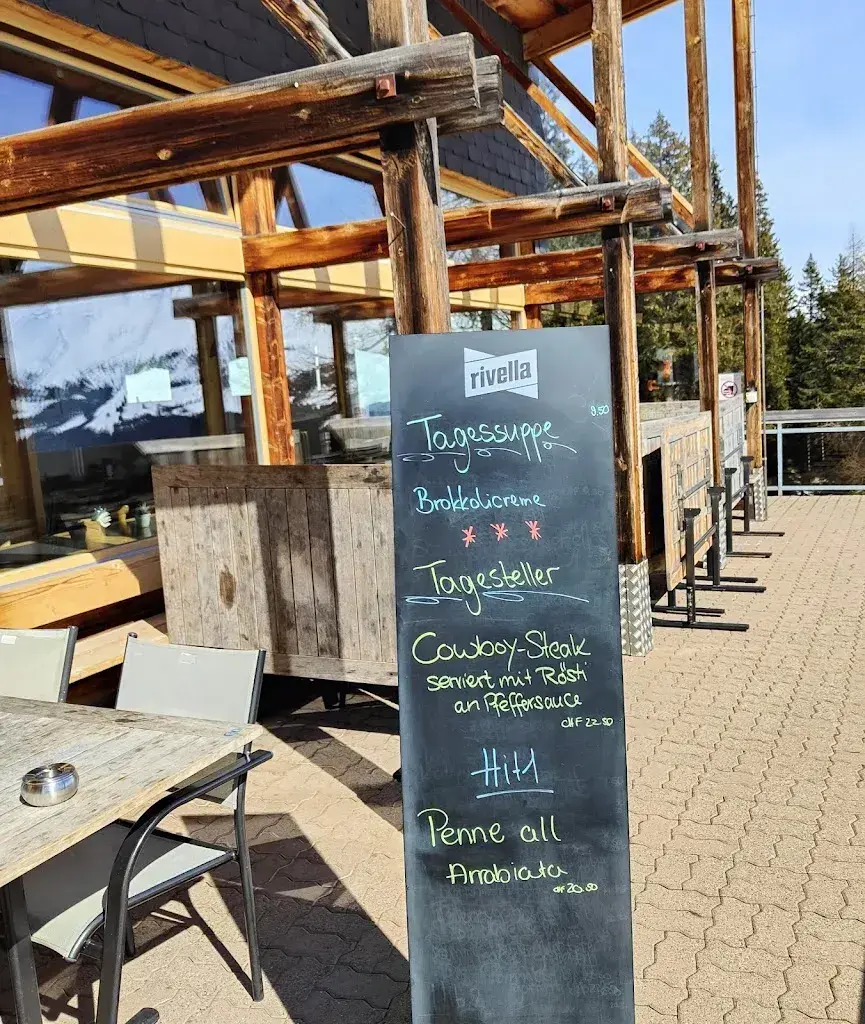 rivella
9.50
Tagessuppe
Brokkolicreme
***
Tagesteller
Cowboy-Steak
serviert mit Rösti
an Pfeffersauce
CHF 22.50
Hit1
Penne all
Arrabiata
CHF 20.50